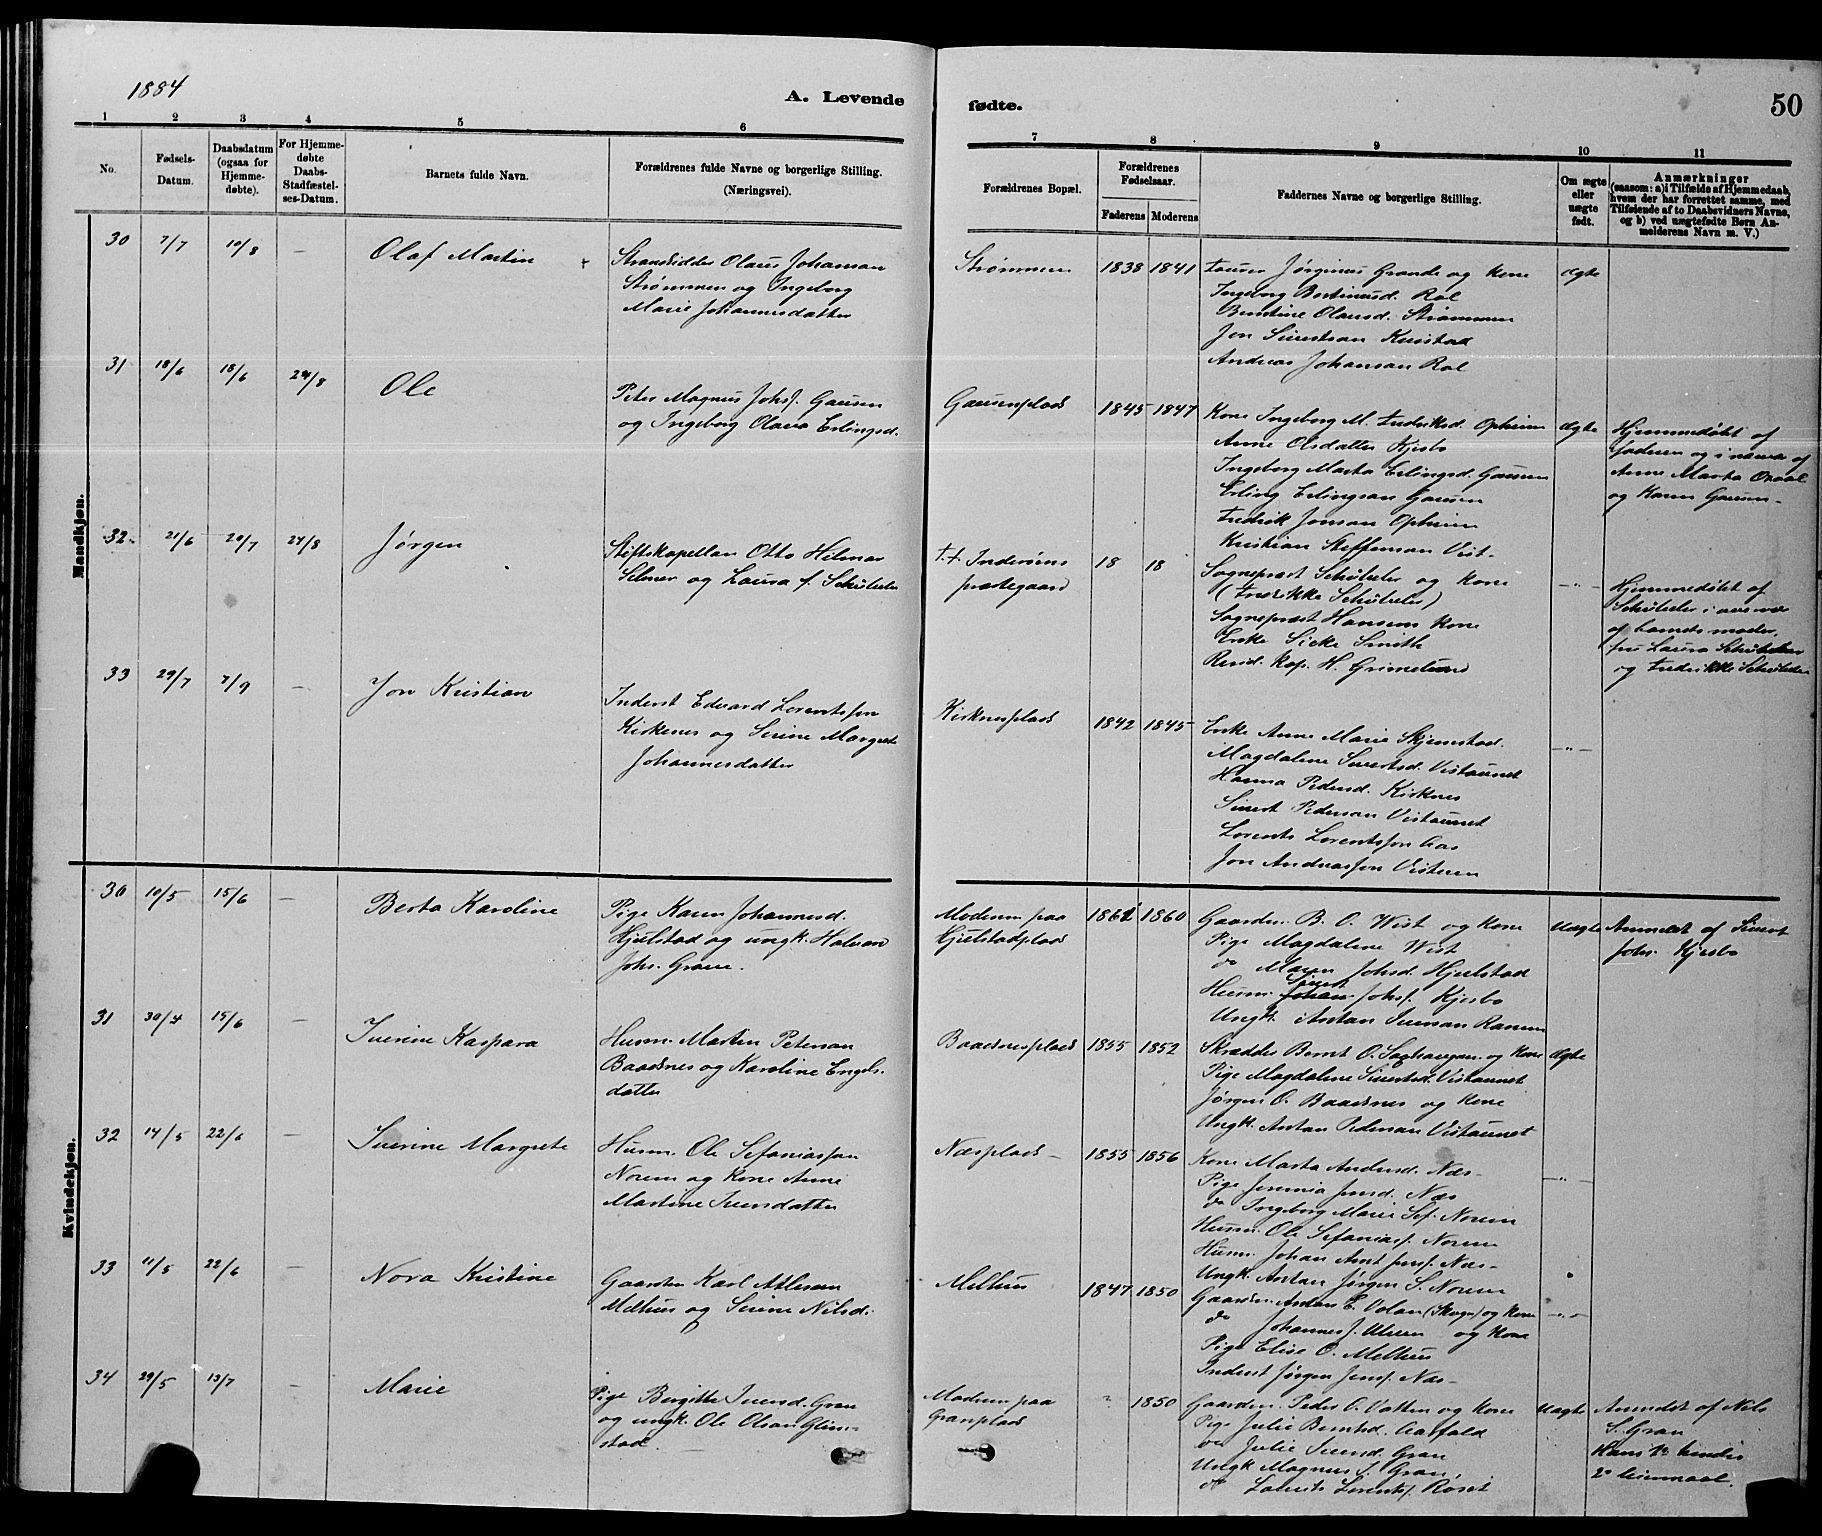 1884
A. Levende
fødte.
50
1 2 3 4 5 6 7 8 9 10 11
No.
Fødsels-
Datum.
Daabsdatum
(ogsaa for
Hjemme-
døbte).
For Hjemme-
døbte
Daabs-
Stadfæstel-
ses-Datum.
Barnets fulde Navn.
Forældrenes fulde Navne og borgerlige Stilling.
(Næringsvei).
Forældrenes Bopæl.
Forældrenes
Fødselsaar.
Faderens
Moderens
Faddernes Navne og borgerlige Stilling.
Om ægte
eller
uægte
født.
Anmærkninger
(saasom: a) i Tilfælde af Hjemmedaab,
hvem der har forrettet samme, med
Tilføiende af to Daabsvidners Navne,
og b) ved uægtefødte Børn An-
melderens Navn m. V.)
Mandkjøn.
30 7/7 10/8 — Olaf Martin
Strandsidder Olaus Johansen
Strømmen og Ingeborg
Marie Johannesdatter
Strømmen 1838 1841
Jørginus Grande og Kone
Ingeborg Rol
Bentine Olausd. Strømmen
Jon Sivertsen
Andreas Johansen Rol
ægte
31 18/6 18/6 24/8 Ole
Peter Magnus Johs. Gausen
og Ingeborg Olava Erlingsd.
Gausenplads 1845 1847
Kone Ingeborg M. Fredriksd. Opheim
Anne Olsdatter Kjesbo
Ingeborg Marta Erlingsd. Gausen
Erling Erlingsen Gausen
Fredrik Jonsen Opheim
Kristian Steffensen Vist-
ægte
Hjemmedøbt af
og i nærvær af
Anne Marta
og Karen Gausen-
32. 21/6 29/7 24/8 Jørgen
Stiftskapellan Otto Hilmar
Selmer og Laura f. Schübeler
t.t. Inderøens
prestegaard 18 18
Sognepræst Schübeler og Kone
(Fredrikke Schübeler)
Sognepræst Hansens Kone
Enke Sicke Smith
Resid. Kap. H. Grimelund
—"—
Hjemmedøbt af
Schübeler i nærvær
af barnets moder,
fru Laura Schübeler
og Fredrikke Schübeler
33 29/7 7/9 — Jon Kristian
Inderst Edvard Lorentssen
Kirknes og Serine Margrete
Johannesdatter
Kirknesplads 1842 1845
Enke Anne Marie Skjemstad.
Magdalene Sivertsd. Vistaunet
Hanna Pedersd. Kirknes
Sivert Pedersen Vistaunet
Lorents Lorentssen
Jon Andreassen Visteren
—"—
Kvindekjøn.
30 10/5 15/6 — Berta Karoline
Pige Karen Johannesd.
Hjelstad og ungk. Halvor
Johs.
Moderen paa
Hjelstadplads 1861 1860
Gaardm. B. O. Wist og Kone
Pige Magdalene Wist
do Maren Johsd. Hjelstad
Sivert
Husm. Johan Johs. Kjesbo
Ungk. Anton Iversen
Uægte
Anmeldt af Sivert
Johs. Kjesbo
31 30/4 15/6 — Iverine Kaspara
Husm. Martin Petersen
Baadsnes og Karoline Engels-
datter
Baadsnesplads 1855 1852
Skrædder Bernt O. Saghaugen og Kone
Pige Magdalene Sivertsd. Vistaunet
Jørgen O. Baadsnes og Kone
Ungk. Anton Pedersen Vistaunet
ægte
32 14/5 22/6 — Iverine Margrete
Husm. Ole Sefaniassen
Norem og Kone Anne
Martine Iversdatter
Næsplads - 1855 1856
Kone Marta Andersd. Næs-
Pige Jensd. Næs
do Ingeborg Marie Sef. Norem
Husm. Ole Sefanias. Norem
Husm. Johan Arnt Jens. Næs-
Ungk. Anton Jørgen S. Norem
—"—
33 11/5 22/6 — Nora Kristine
Gaardm. Karl Atlesen
Melhus og Serine Nilsd.
Melhus 1847 1850
Gaardm. Anton E. Volan (Skogn) og Kone
do Johannes J. og Kone
Pige Elise O. Melhus
Inderst Jørgen Jens. Næs-
—"—
34 29/5 13/7 — Marie
Pige Bergitte Iversd. Gran
og ungk. Ole Olsen Glim-
stad.
Moderen paa
Granplads ? 1850
Gaardm. Peder O. Vatten og Kone
Pige Julie Berntsd.
do Julie Iversd. Gran
Ungk. Magnus S. Gran,
do Lorents. Roset
Uægte
Anmeldt af Nils
S. Gran
Hans 1ste hendes
2det leiermaal.